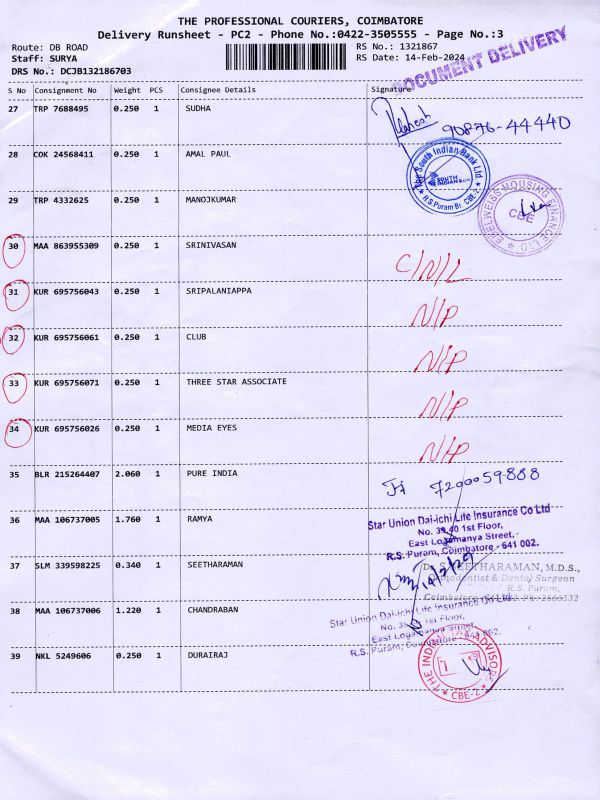 THE PROFESSIONAL COURIERS, COIMBATORE
Delivery Runsheet - PC2 - Phone No.:0422-3505555 - Page No.:3
Route: DB ROAD
RS No.: 1321867
Staff: SURYA
RS Date: 14-Feb-2024
DOCUMENT DELIVERY
DRS No.: DCJB132186703
S No Consignment No Weight PCS Consignee Details Signature
27 TRP 7688495 0.250 1 SUDHA
90876-44440
28 COK 24568411 0.250 1 AMAL PAUL
The South Indian Bank Ltd
SOUTH INDIAN Bank
R.S.Puram Br. CBE-2
29 TRP 4332625 0.250 1 MANOJKUMAR
EDELWEISS HOUSING FINANCE LTD
CBE
30 MAA 863955309 0.250 1 SRINIVASAN
C/N/L
31 KUR 695756043 0.250 1 SRIPALANIAPPA
N/P
32 KUR 695756061 0.250 1 CLUB
N/P
33 KUR 695756071 0.250 1 THREE STAR ASSOCIATE
N/P
34 KUR 695756026 0.250 1 MEDIA EYES
N/P
35 BLR 215264407 2.060 1 PURE INDIA
7200059888
36 MAA 106737005 1.760 1 RAMYA
Star Union Dai-ichi Life Insurance Co Ltd
No. 39,40 1st Floor,
East Logamanya Street,
R.S. Puram, Coimbatore - 641 002.
37 SLM 339598225 0.340 1 SEETHARAMAN
SEETHARAMAN, M.D.S.,
Orthodontist & Dental Surgeon
R.S. Puram,
Coimbatore
38 MAA 106737006 1.220 1 CHANDRABAN
Star Union Dai-ichi Life Insurance Co Ltd
No. 39,40 1st Floor,
East Logamanya Street,
R.S. Puram, Coimbatore - 641 002.
39 NKL 5249606 0.250 1 DURAIRAJ
THE INDIAN TAX ADVISORS
CBE-2